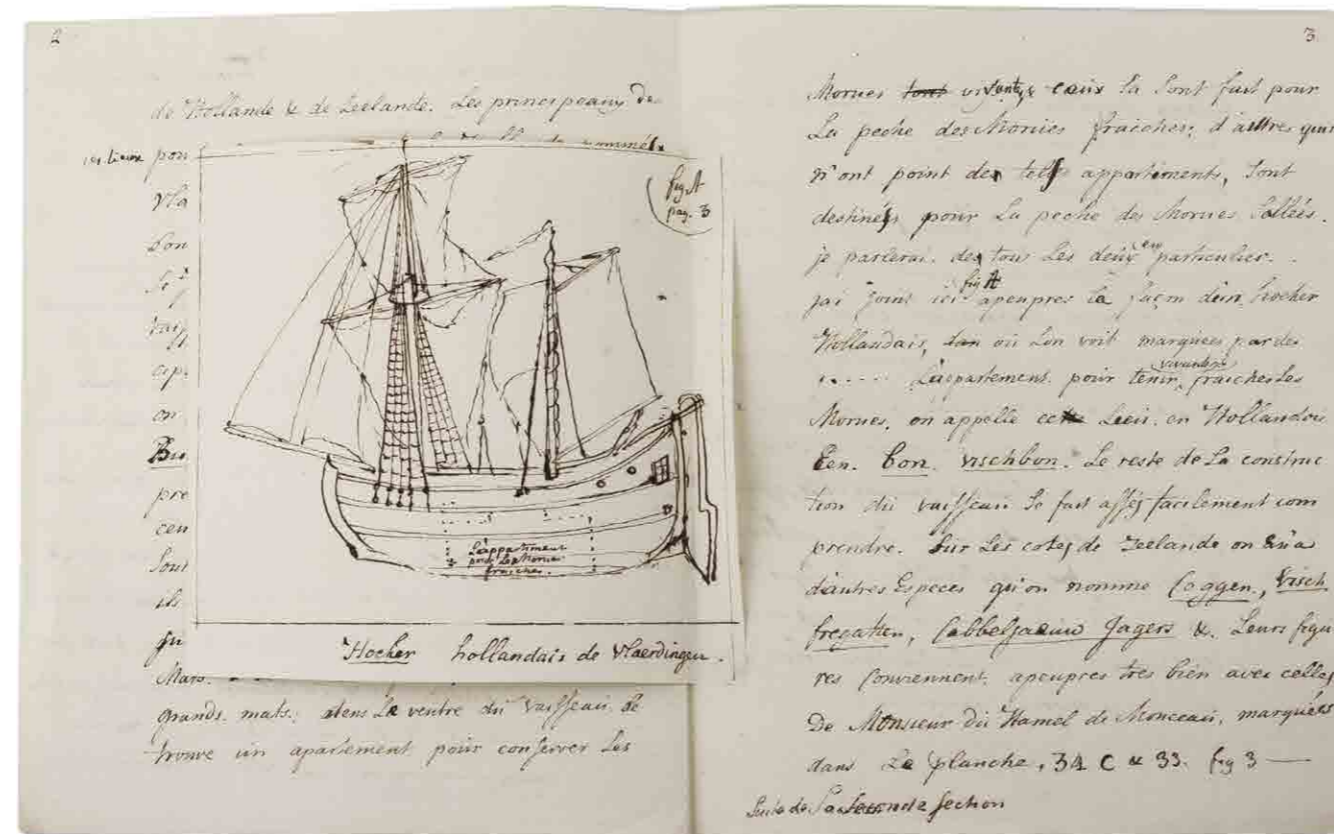 2
de Hollande & de Zeelande. Les principeaux de
ces lieux pou
nommés
Vla
bon
Se
vaiss
cip
on
Bu
pre
cen
Sont
ils
qu
Mats.
grands mats; dens Le ventre du vaisseau se
trouve un apartement pour conserver Les
fig. A
pag. 3
L'appartement
pour Les Morues
fraiches.
Hocker hollandais de Vlaerdingen.
3
Morues tous vivantes ceux la sont fait pour
La peche des Morues fraiches; d'aultres qui
n'ont point des tels appartements, sont
destinés pour La peche des Morues Sallées.
je parlerai des tous Les deux en particulier.
jai joint ici fig A apeupres la façon d'un hocker
Hollandais, ou Lon voit marquees par des
..... L'appartement pour tenir vivantes fraiches Les
Morues, on appelle cette Leeu en Hollandois
Een bon vischbon. Le reste de La construc
tion du vaisseau se fait assés facilement com
prendre. Sur Les cotes de Zeelande on en a
d'autres Especes qu'on nomme Coggen, Visch
fregatten, Cabbeljaeuw Jagers &. Leurs figu
res conviennent apeupres tres bien avec celles
De Monsieur du Hamel de Monceau, marquées
dans La planche, 34 C & 33. fig 3 —
Suite de La Seconde section